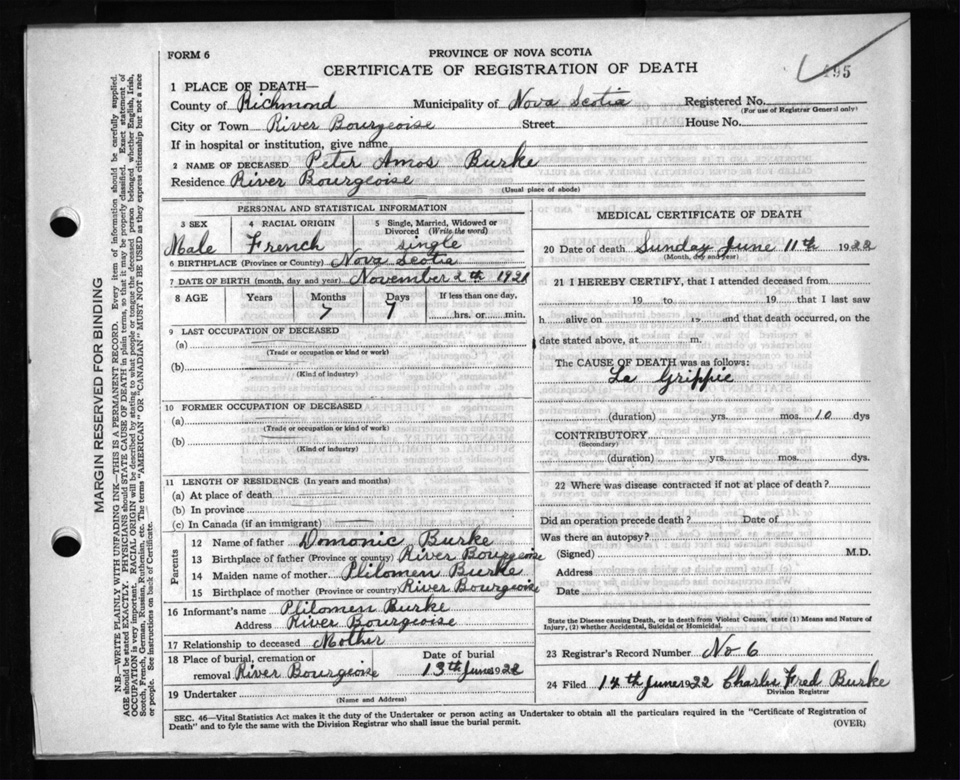 FORM 6
PROVINCE OF NOVA SCOTIA
CERTIFICATE OF REGISTRATION OF DEATH
195
1 PLACE OF DEATH—
County of Richmond Municipality of Nova Scotia Registered No.
(For use of Registrar General only)
City or Town River Bourgeoise Street House No.
If in hospital or institution, give name
2 NAME OF DECEASED Peter Amos Burke
Residence River Bourgeoise
(Usual place of abode)
PERSONAL AND STATISTICAL INFORMATION
3 SEX 4 RACIAL ORIGIN 5 Single, Married, Widowed or Divorced (Write the word)
Male French single
6 BIRTHPLACE (Province or Country) Nova Scotia
7 DATE OF BIRTH (month, day and year) November 2th 1921
8 AGE Years Months Days If less than one day,
7 9 hrs. or min.
9 LAST OCCUPATION OF DECEASED
(a)
(Trade or occupation or kind or work)
(b)
(Kind of industry)
10 FORMER OCCUPATION OF DECEASED
(a)
(Trade or occupation or kind of work)
(b)
(Kind of industry)
11 LENGTH OF RESIDENCE (In years and months)
(a) At place of death
(b) In province
(c) In Canada (if an immigrant)
Parents
12 Name of father Domonic Burke
13 Birthplace of father (Province or country) River Bourgeoise
14 Maiden name of mother Plilomen Burke
15 Birthplace of mother (Province or country) River Bourgeoise
16 Informant's name Plilomen Burke
Address River Bourgeoise
17 Relationship to deceased Mother
18 Place of burial, cremation or removal River Bourgeoise Date of burial 13th June 1922
19 Undertaker
(Name and Address)
MEDICAL CERTIFICATE OF DEATH
20 Date of death Sunday June 11th 1922
(Month, day and year)
21 I HEREBY CERTIFY, that I attended deceased from
19 to 19 that I last saw
h alive on 19 and that death occurred, on the
date stated above, at m.
The CAUSE OF DEATH was as follows:
La Grippie
(duration) yrs. mos. 10 dys
CONTRIBUTORY
(Secondary)
(duration) yrs. mos. dys.
22 Where was disease contracted if not at place of death?
Did an operation precede death? Date of
Was there an autopsy?
(Signed) M.D.
Address
Date
State the Disease causing Death, or in death from Violent Causes, state (1) Means and Nature of
Injury, (2) whether Accidental, Suicidal or Homicidal.
23 Registrar's Record Number No 6
24 Filed 14th June 1922 Charles Fred Burke
Division Registrar
SEC. 46—Vital Statistics Act makes it the duty of the Undertaker or person acting as Undertaker to obtain all the particulars required in the "Certificate of Registration of
Death" and to fyle the same with the Division Registrar who shall issue the burial permit.
(OVER)
MARGIN RESERVED FOR BINDING
N.B.—WRITE PLAINLY WITH UNFADING INK—THIS IS A PERMANENT RECORD. Every item of information should be carefully supplied.
AGE should be stated EXACTLY. PHYSICIANS should STATE CAUSE OF DEATH in plain terms, so that it may be properly classified. Exact statement of
OCCUPATION is very important. RACIAL ORIGIN will be described by stating to what people or tongue the deceased person belonged whether English, Irish,
Scotch, French, German, Russian, Ruthenian, etc. The terms "AMERICAN" OR "CANADIAN" MUST NOT BE USED as they express citizenship but not a race
or people. See instructions on back of Certificate.